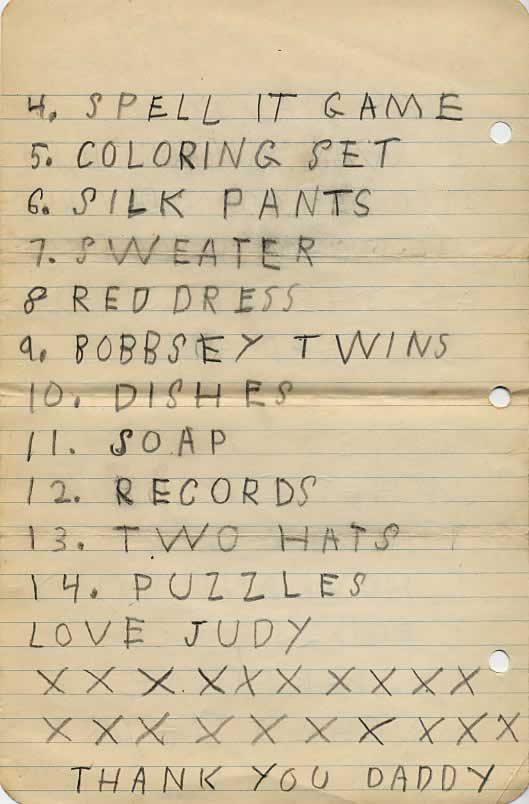 4. SPELL IT GAME
5. COLORING SET
6. SILK PANTS
7. SWEATER
8 RED DRESS
9. BOBBSEY TWINS
10. DISHES
11. SOAP
12. RECORDS
13. TWO HATS
14. PUZZLES
LOVE JUDY
X X X X X X X X X X
X X X X X X X X X X
THANK YOU DADDY